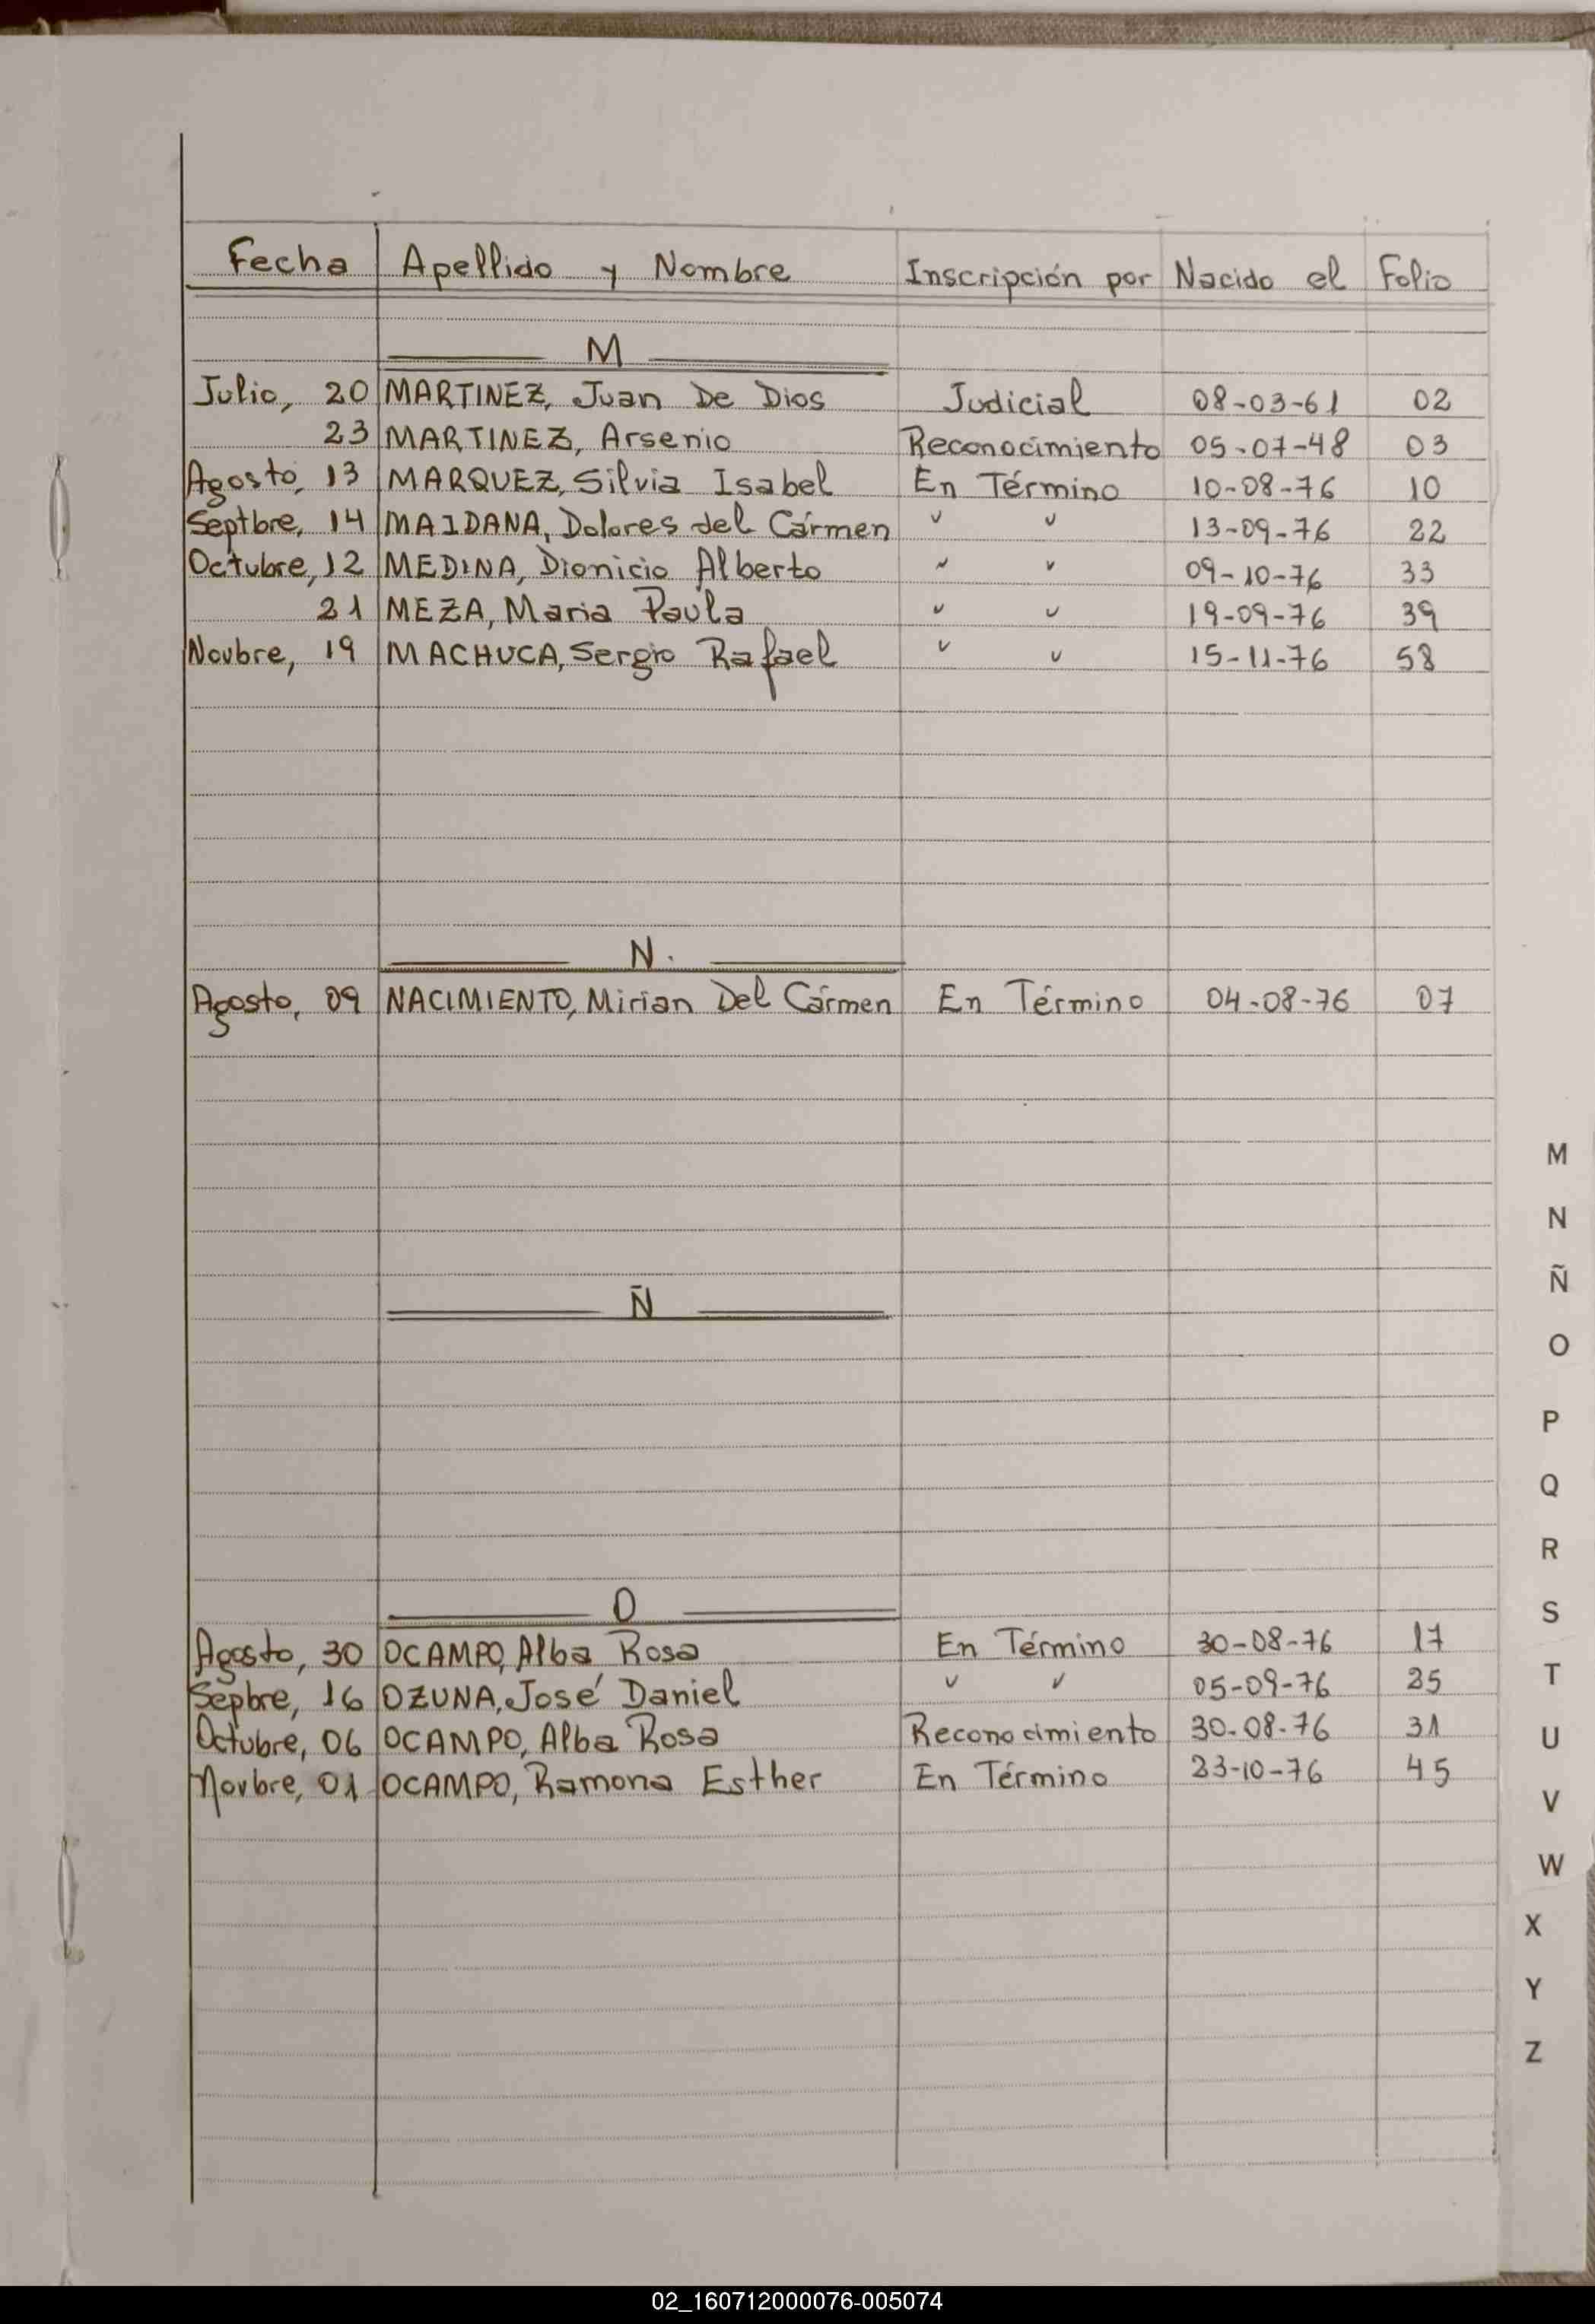 Fecha Apellido y Nombre Inscripción por Nacido el Folio
M
Julio, 20 MARTINEZ, Juan De Dios Judicial 08-03-61 02
23 MARTINEZ, Arsenio Reconocimiento 05-07-48 03
Agosto, 13 MARQUEZ, Silvia Isabel En Término 10-08-76 10
Septbre, 14 MAIDANA, Dolores del Cármen " " 13-09-76 22
Octubre, 12 MEDINA, Dionicio Alberto " " 09-10-76 33
21 MEZA, Maria Paula " " 19-09-76 39
Novbre, 19 MACHUCA, Sergio Rafael " " 15-11-76 58
N.
Agosto, 09 NACIMIENTO, Mirian Del Cármen En Término 04-08-76 07
Ñ
O
Agosto, 30 OCAMPO, Alba Rosa En Término 30-08-76 17
Sepbre, 16 OZUNA, José Daniel " " 05-09-76 25
Octubre, 06 OCAMPO, Alba Rosa Reconocimiento 30-08-76 31
Novbre, 01 OCAMPO, Ramona Esther En Término 23-10-76 45
M
N
Ñ
O
P
Q
R
S
T
U
V
W
X
Y
Z
02_160712000076-005074